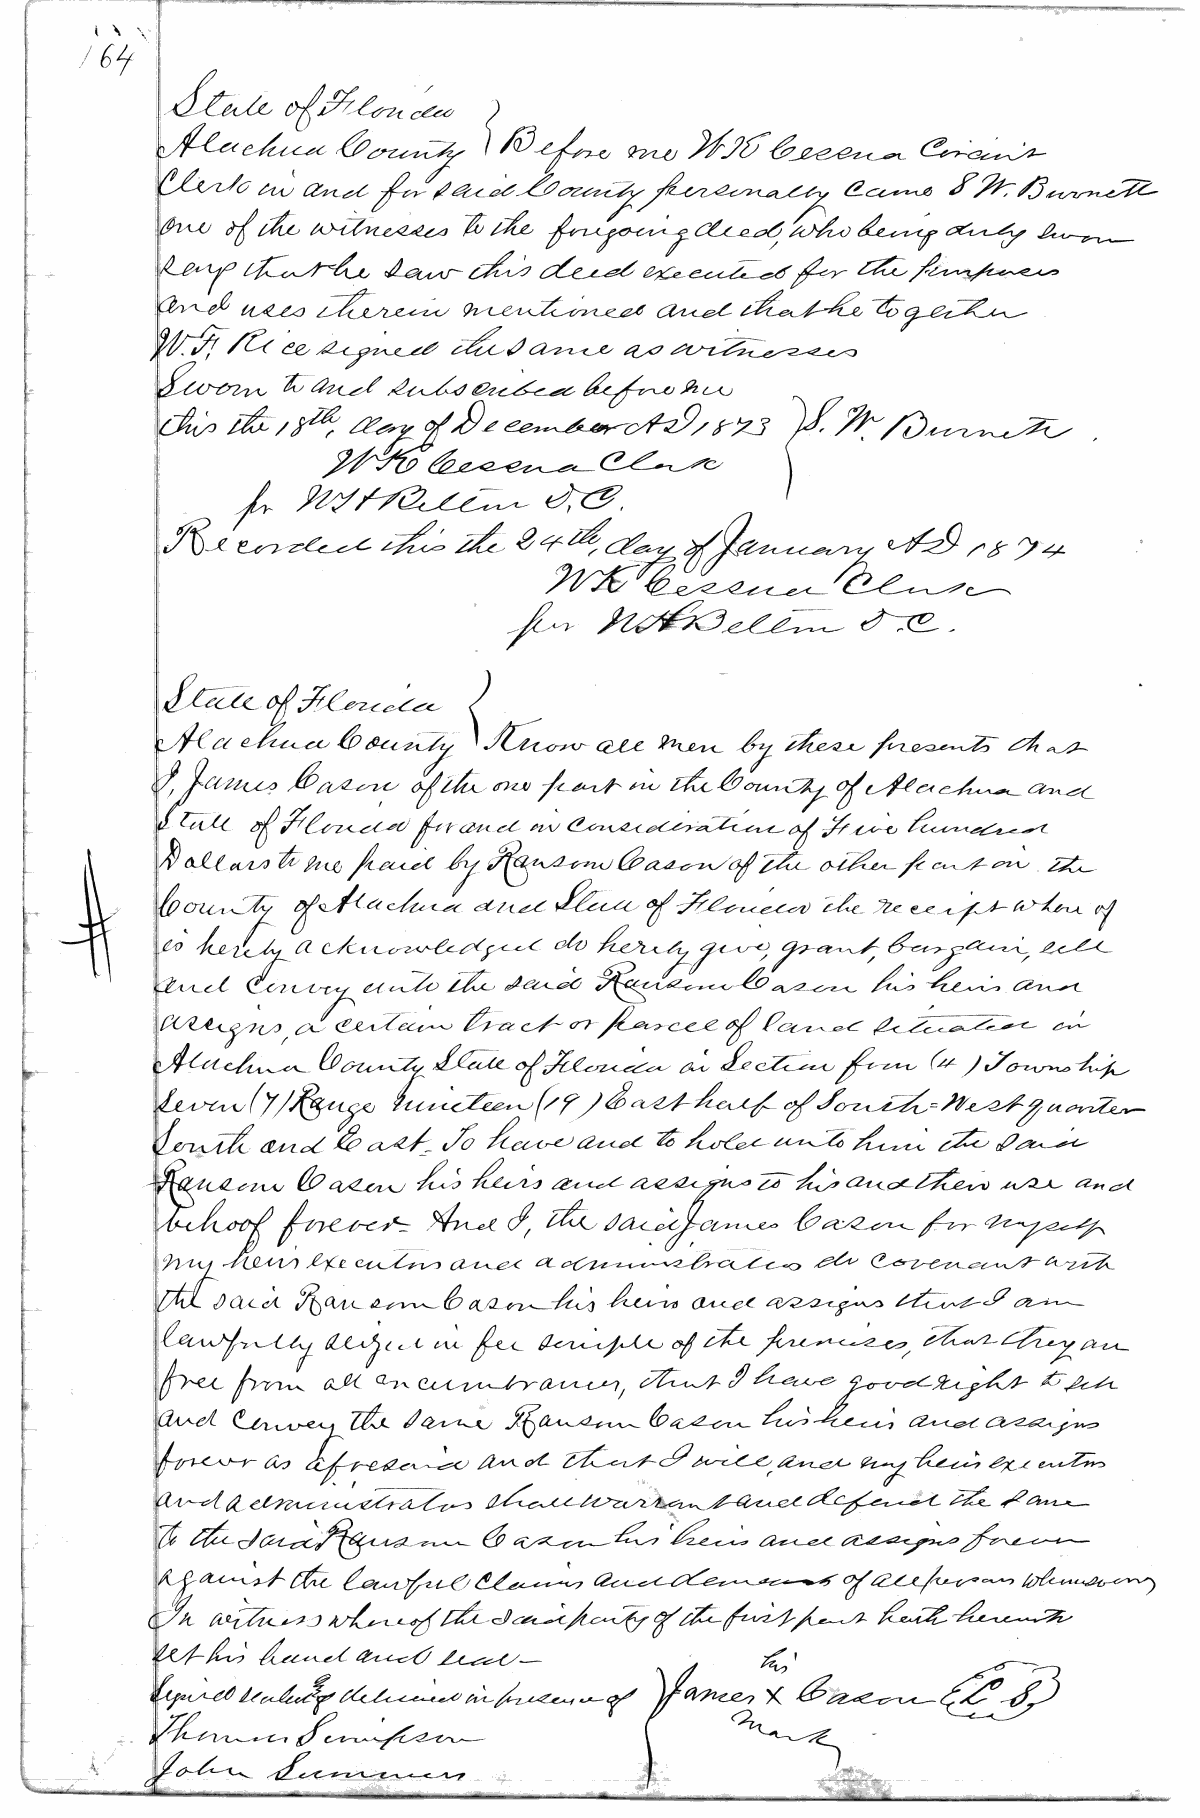 164
State of Florida
Alachua County } Before me W K Cessna Circuit
Clerk in and for said County personally came S W. Burnett
one of the witnesses to the foregoing deed, who being duly sworn
says that he saw this deed executed for the purposes
and uses therein mentioned and that he together
W. F. Rice signed the same as witnesses
Sworn to and subscribed before me
this the 18th, day of December AD 1873 } S. W. Burnett
W K Cessna Clerk
for W H Belton D. C.
Recorded this the 24th, day of January AD 1874
W K Cessna Clerk
per W H Belton D. C.
State of Florida
Alachua County } Know all men by these presents that
I, James Cason of the one part in the County of Alachua and
State of Florida for and in consideration of Five hundred
Dollars to me paid by Ransom Cason of the other part in the
County of Alachua and State of Florida the receipt where of
is hereby acknowledged do hereby give, grant, bargain, sell
and convey unto the said Ransom Cason his heirs and
assigns, a certain tract or parcel of land situated in
Alachua County State of Florida in Section four (4) Township
Seven (7) Range Nineteen (19) East half of South=West quarter
South and East. To have and to hold unto him the said
Ransom Cason his heirs and assigns to his and their use and
behoof forever And I, the said James Cason for myself
my heirs executors and administrators do covenant with
the said Ransom Cason his heirs and assigns that I am
lawfully seized in fee simple of the premises, that they are
free from all incumbrances, that I have good right to sell
and convey the same Ransom Cason his heirs and assigns
forever as aforesaid and that I will, and my heirs executors
and administrators shall warrant and defend the same
to the said Ransom Cason his heirs and assigns forever
against the lawful claims and demands of all persons whomsoever
In witness where of the said party of the first part hath hereunto
set his hand and seal -
Signed sealed & delivered in presence of } James his x mark Cason (L. S.)
Thomas Simpson
John Summers